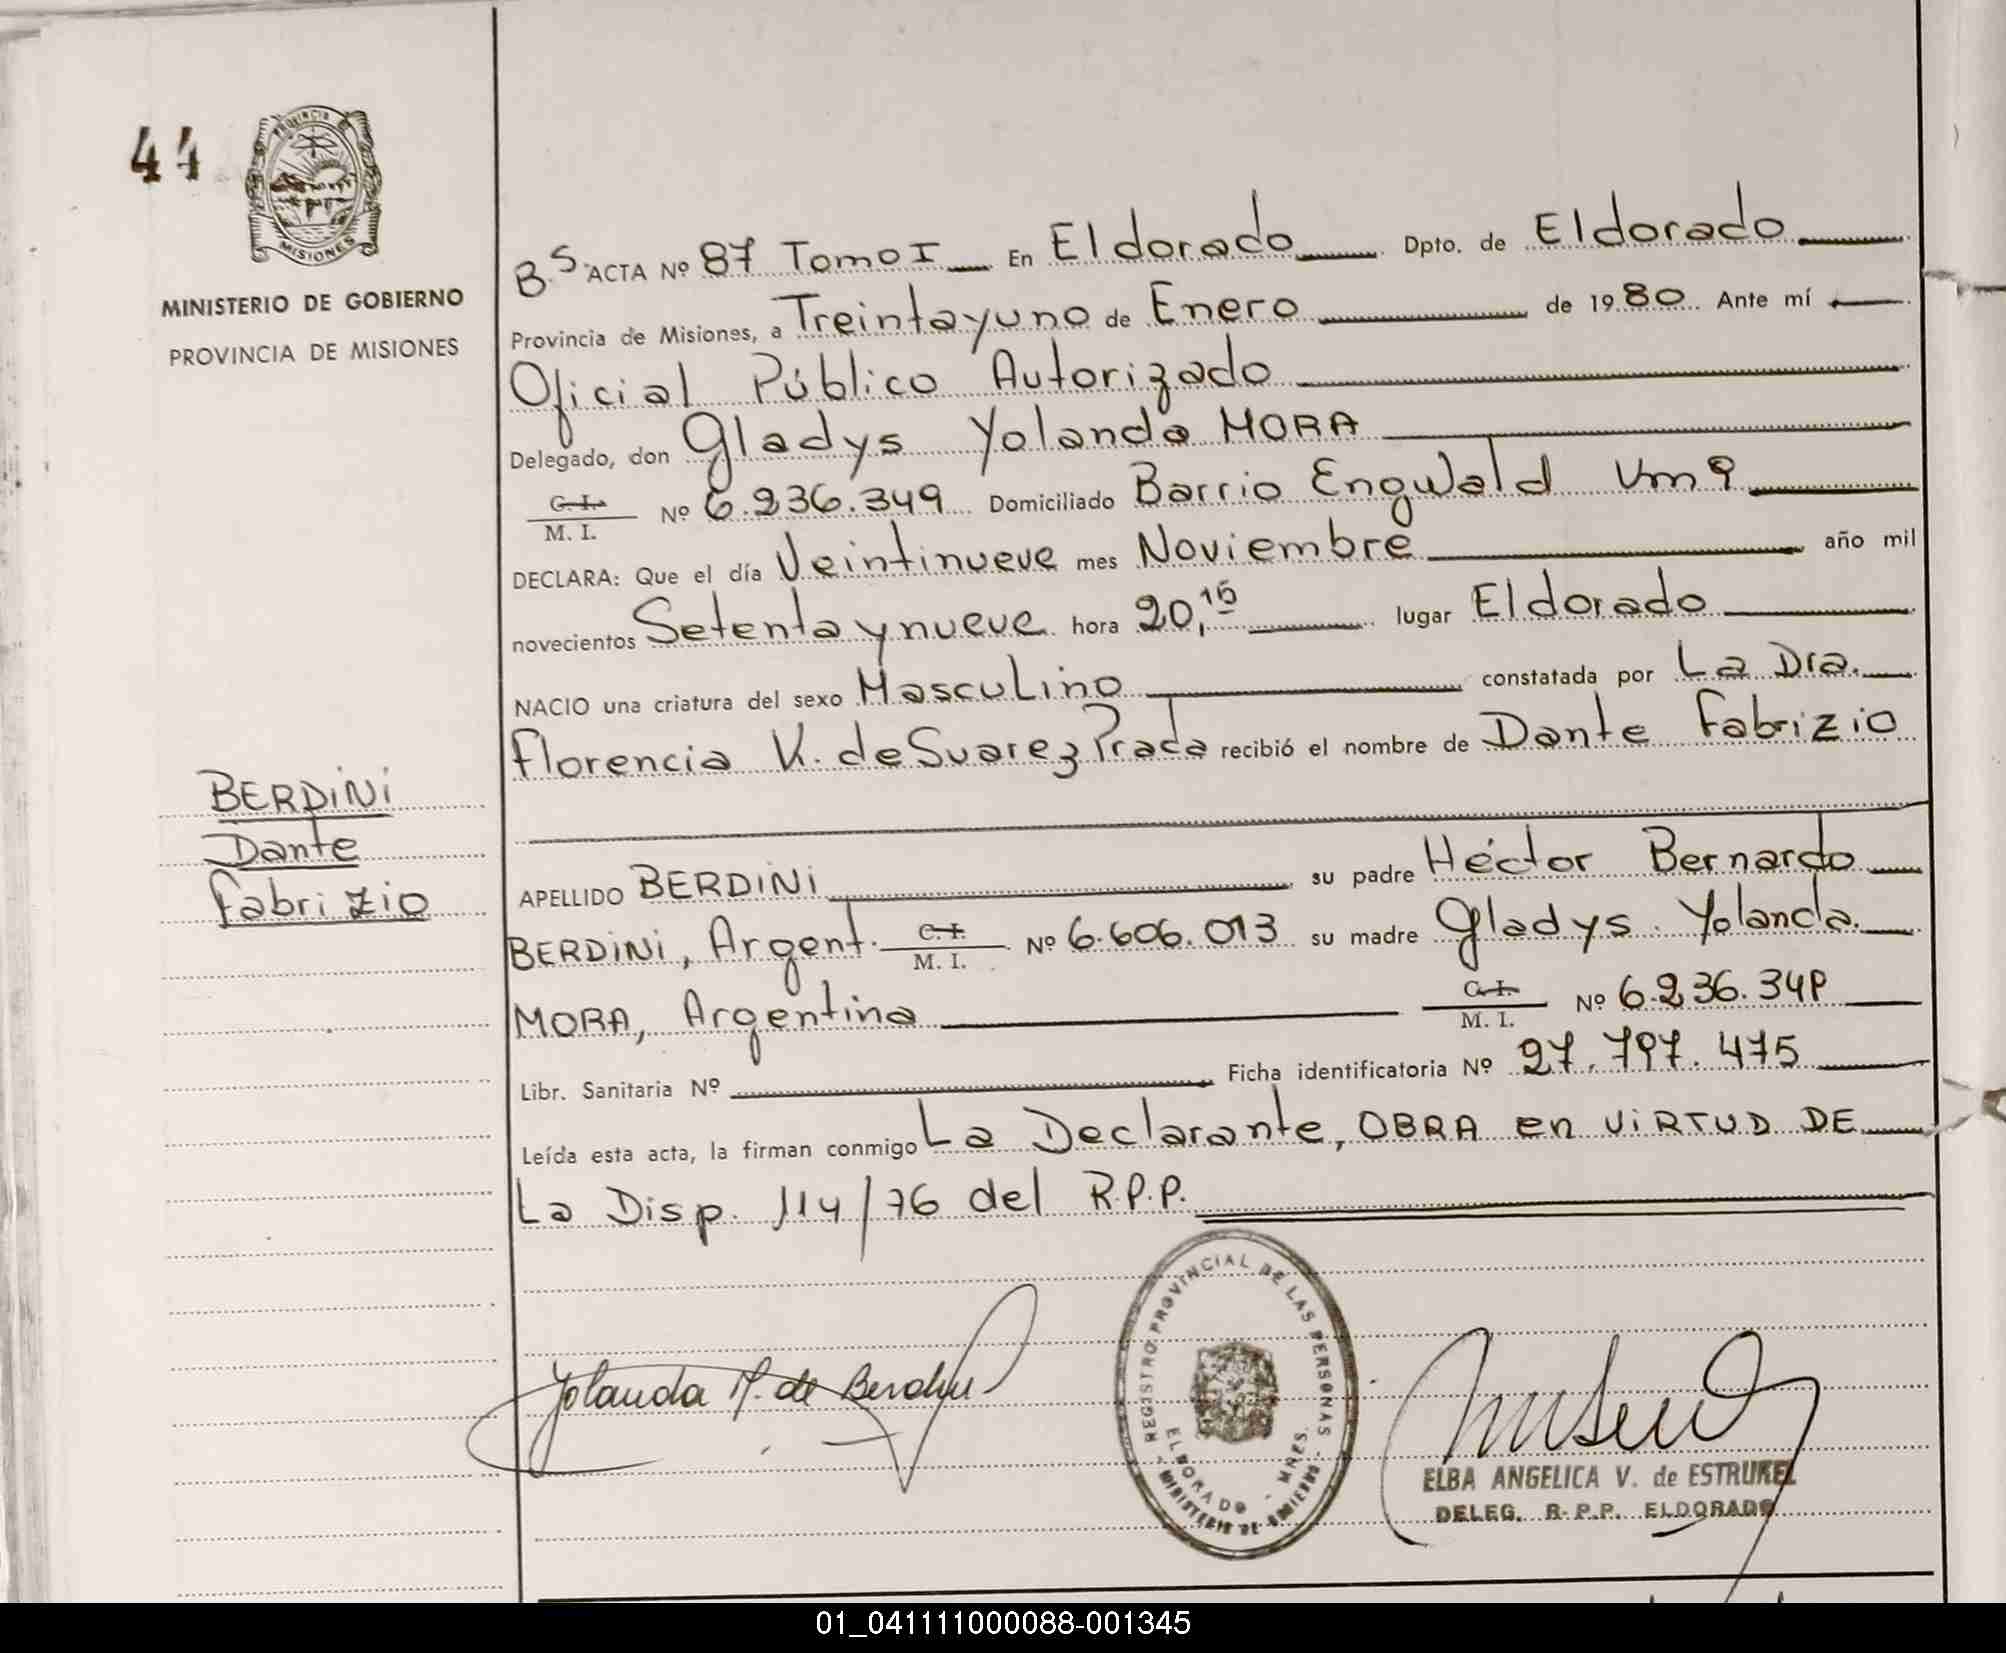 44
PROVINCIA DE
MISIONES
MINISTERIO DE GOBIERNO
PROVINCIA DE MISIONES
B.S ACTA Nº 87 Tomo I En Eldorado Dpto. de Eldorado
Provincia de Misiones, a Treintayuno de Enero de 1980 Ante mí
Oficial Público Autorizado
Delegado, don Gladys Yolanda MORA
C.I.
M. I. Nº 6.236.349 Domiciliado Barrio Engwald Km 9
DECLARA: Que el día Veintinueve mes Noviembre año mil
novecientos Setenta y nueve hora 20,15 lugar Eldorado
NACIO una criatura del sexo Masculino constatada por La Dra.
Florencia K. de Suarez Prada recibió el nombre de Dante Fabrizio
BERDiNi
Dante
Fabrizio
APELLIDO BERDiNi su padre Héctor Bernardo
BERDiNi, Argent. C.I. M. I. Nº 6.606.013 su madre Gladys Yolanda
MORA, Argentina C.I. M. I. Nº 6.236.349
Libr. Sanitaria Nº Ficha identificatoria Nº 27.797.475
Leída esta acta, la firman conmigo La Declarante, OBRA en ViRTUD DE
La Disp. 114/76 del R.P.P.
Yolanda M. de Berdini
REGISTRO PROVINCIAL DE LAS PERSONAS
ELDORADO - MNES.
MINISTERIO DE GOBIERNO
ELBA ANGELICA V. de ESTRUKEL
DELEG. R.P.P. ELDORADO
01_041111000088-001345